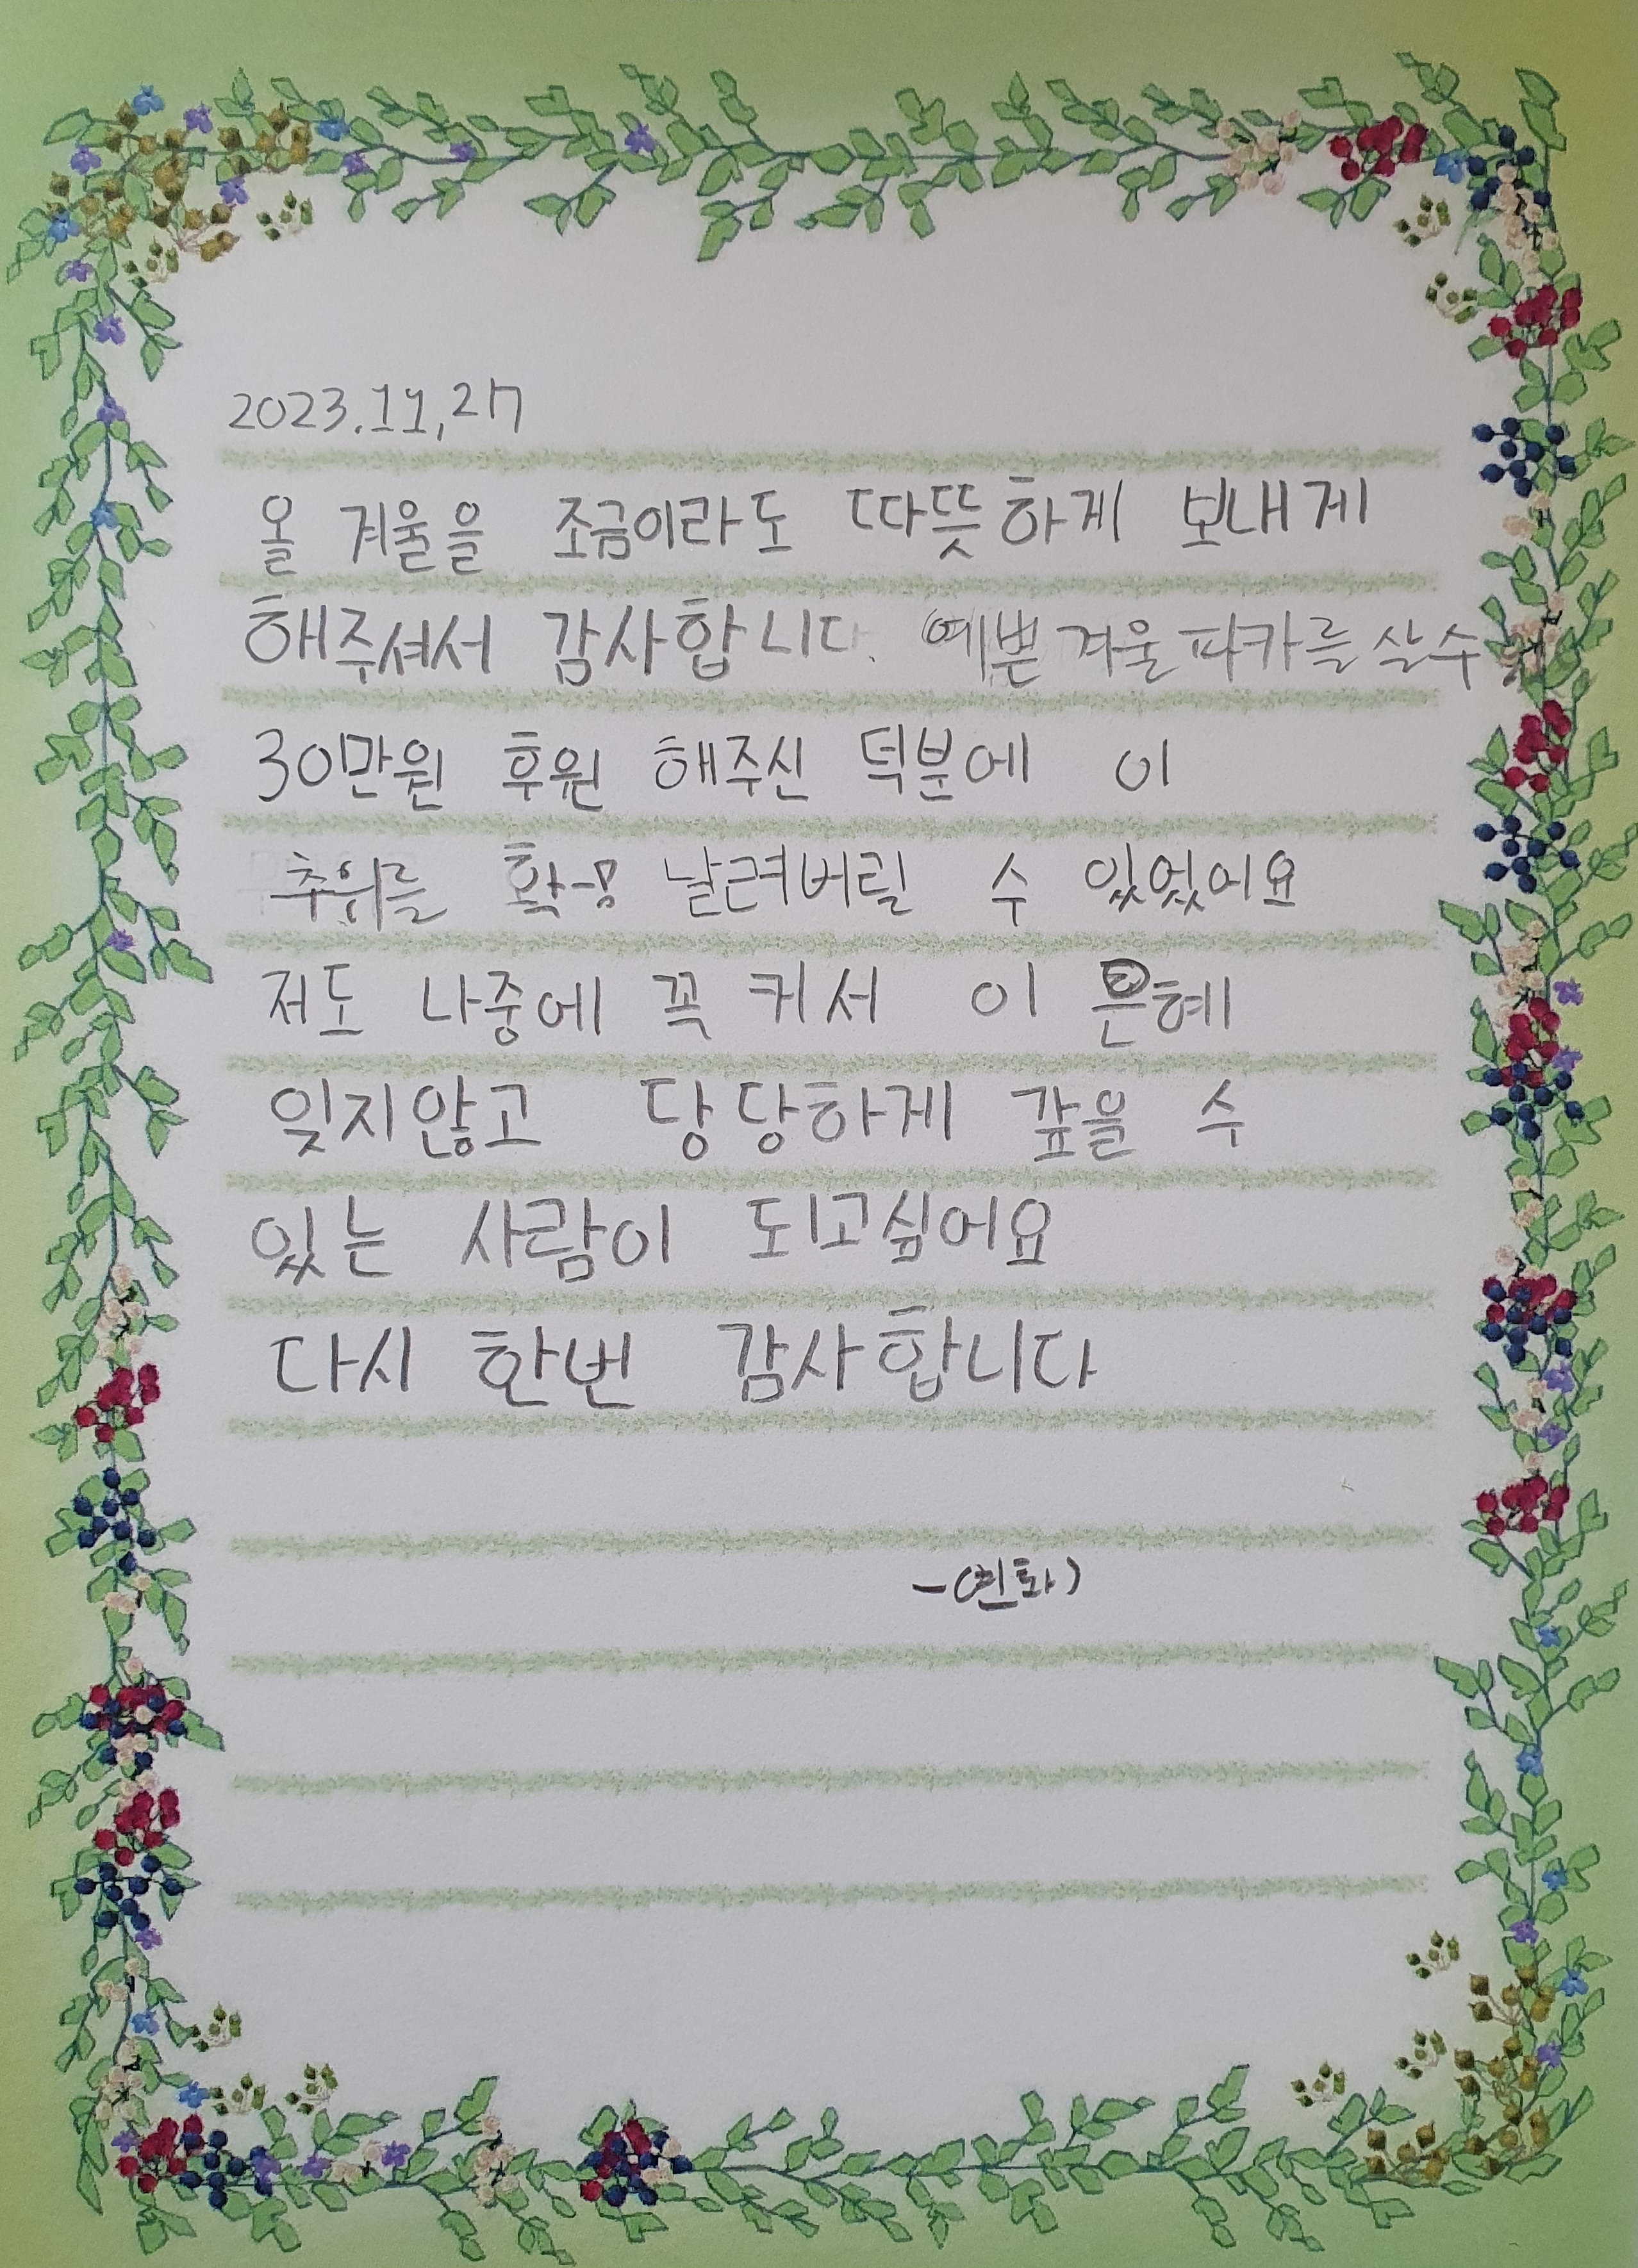 2023.11,27
올 겨울을 조금이라도 따뜻하게 보내게
해주셔서 감사합니다. 예쁜 겨울파카를 살수
30만원 후원 해주신 덕분에 이
추위를 확 날려버릴 수 있었어요
저도 나중에 꼭 커서 이 은혜
잊지않고 당당하게 갚을 수
있는 사람이 되고싶어요
다시 한번 감사합니다